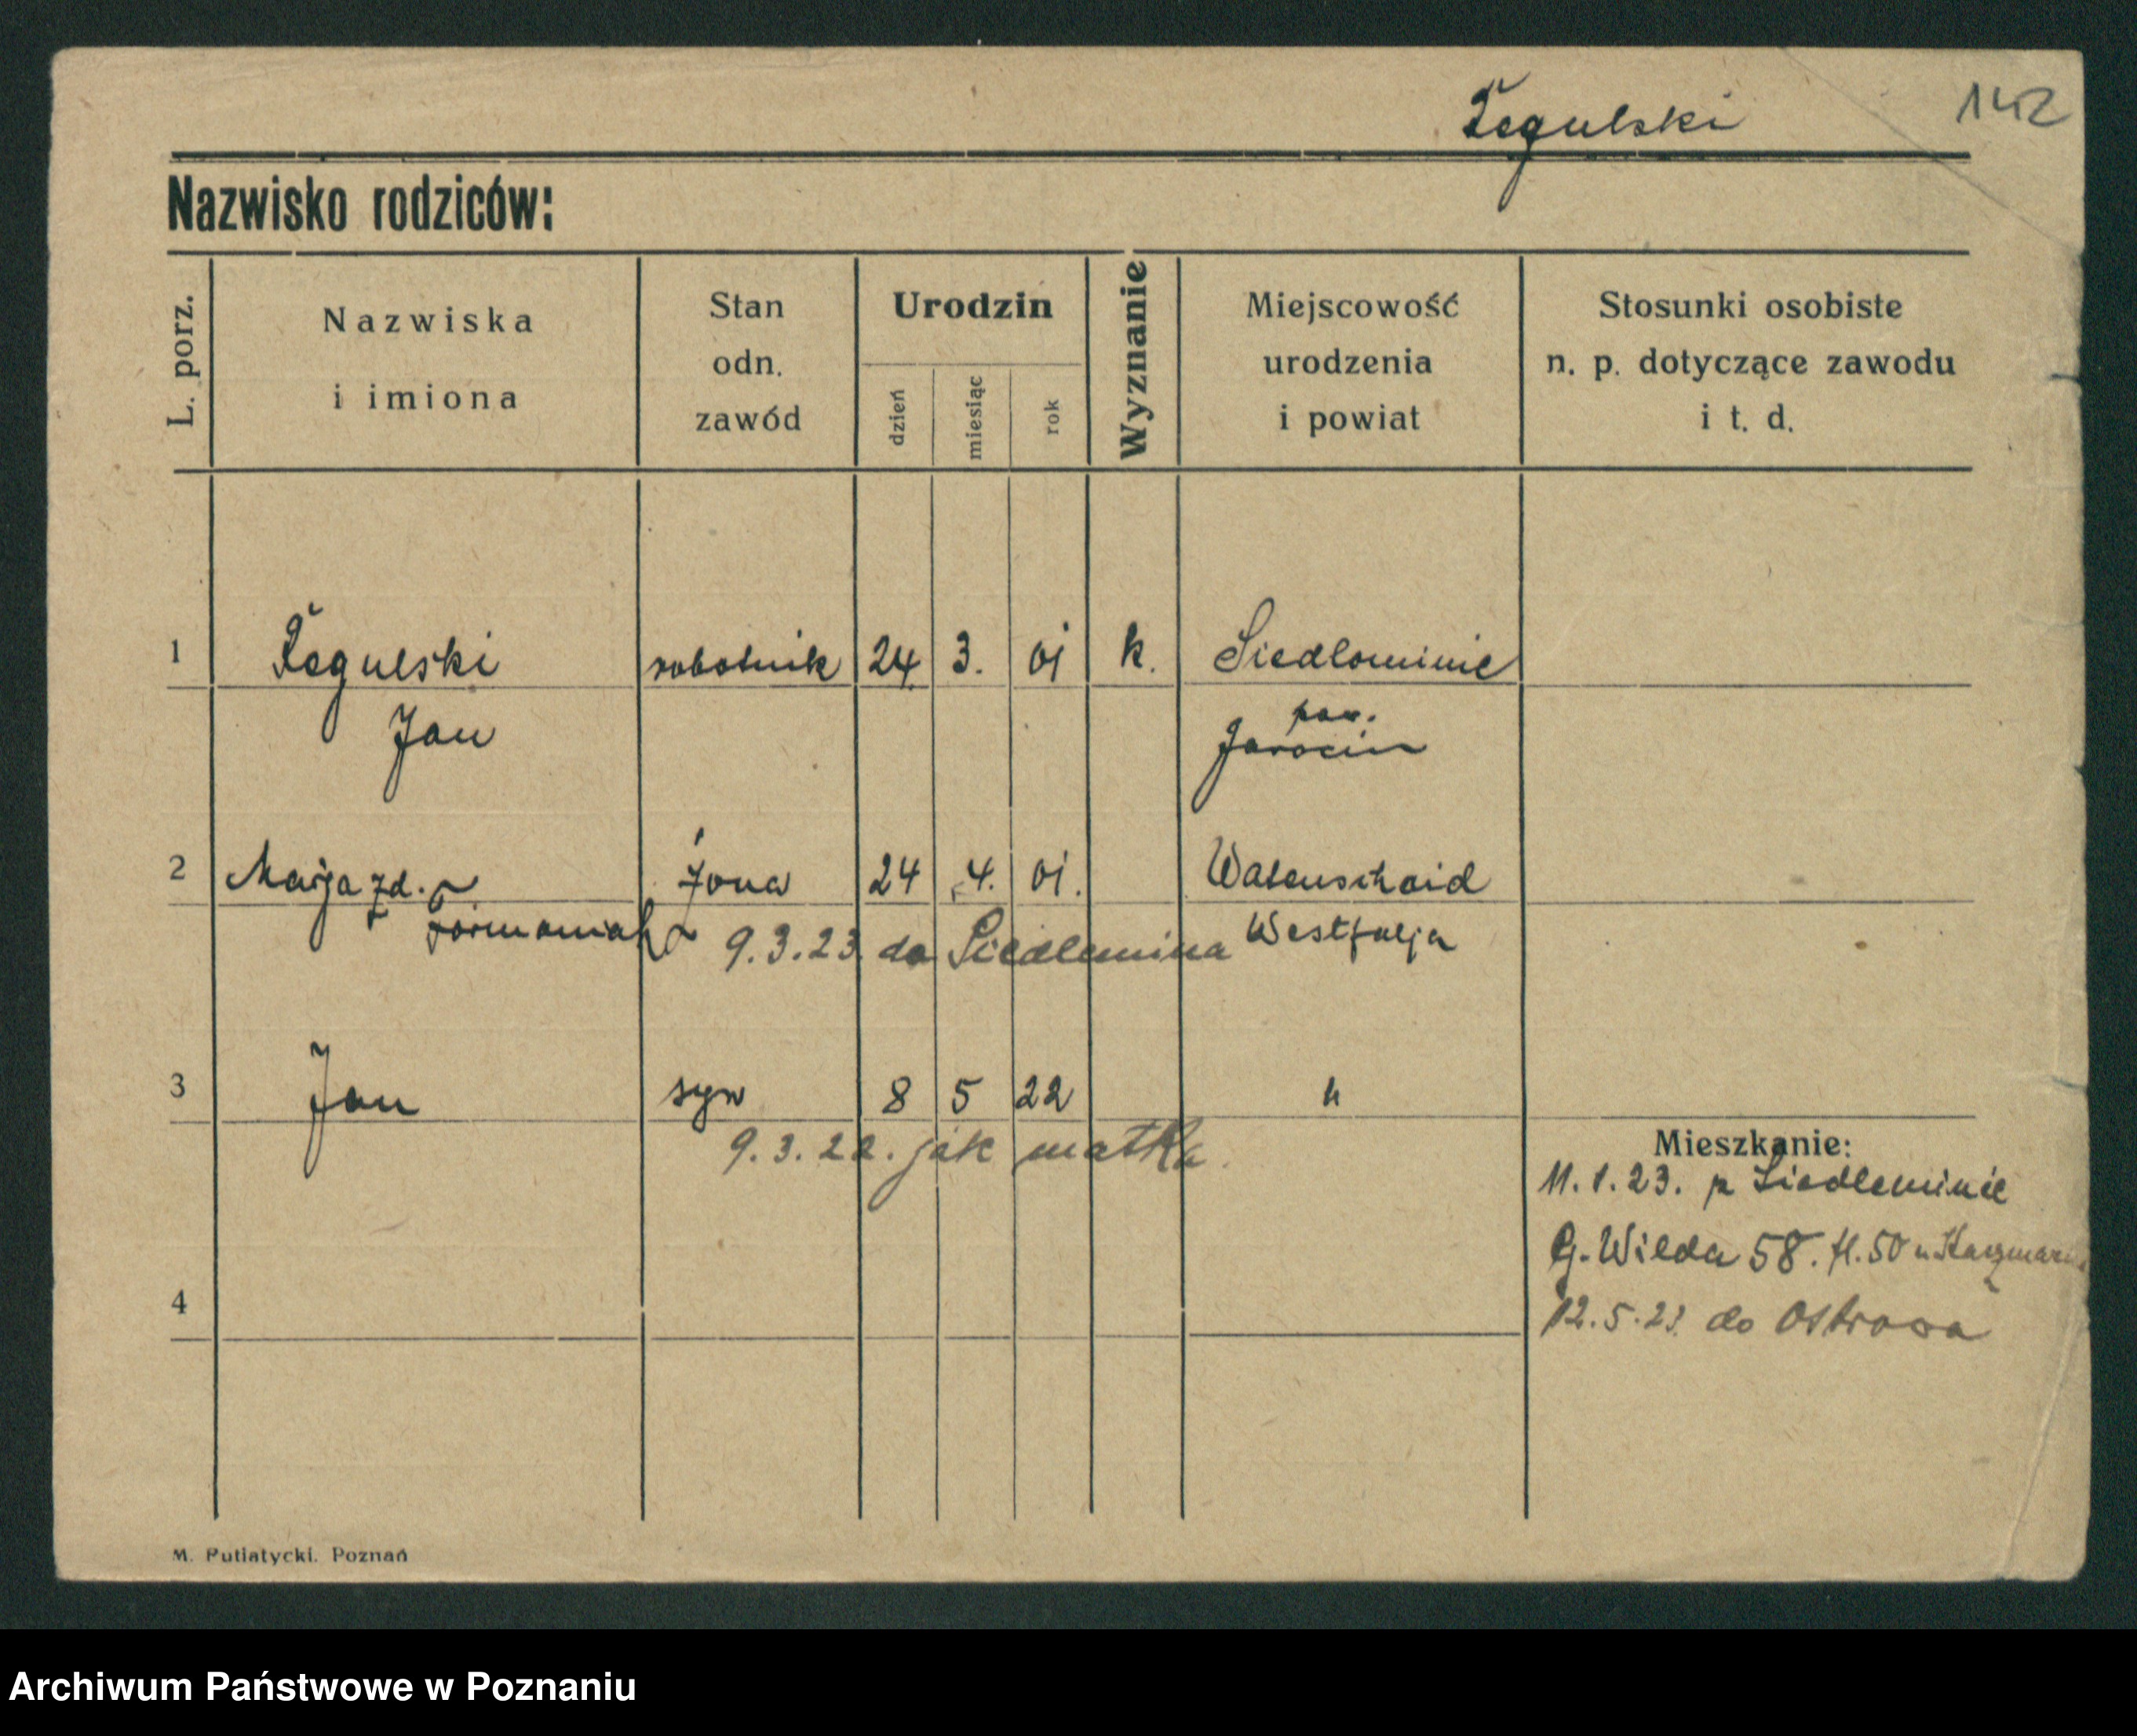 Żegulski
142
Nazwisko rodziców:
L. porz.
Nazwiska
i imiona
Stan
odn.
zawód
Urodzin
dzień
miesiąc
rok
Wyznanie
Miejscowość
urodzenia
i powiat
Stosunki osobiste
n. p. dotyczące zawodu
i t. d.
1 Żegulski robotnik 24 3. 01 k. Siedlominie
Jan pow.
Jarocin
2 Marja zd. żona 24 4. 01. Watenschaid
Westfalja
9.3.23 do Siedlemina
3 Jan syn 8 5 22 "
9.3.22. jak matka
Mieszkanie:
11.1.23. p Siedleminie
G. Wilda 58. fl. 50 u
4
12.5.23. do Ostrowa
M. Putiatycki. Poznań
Archiwum Państwowe w Poznaniu